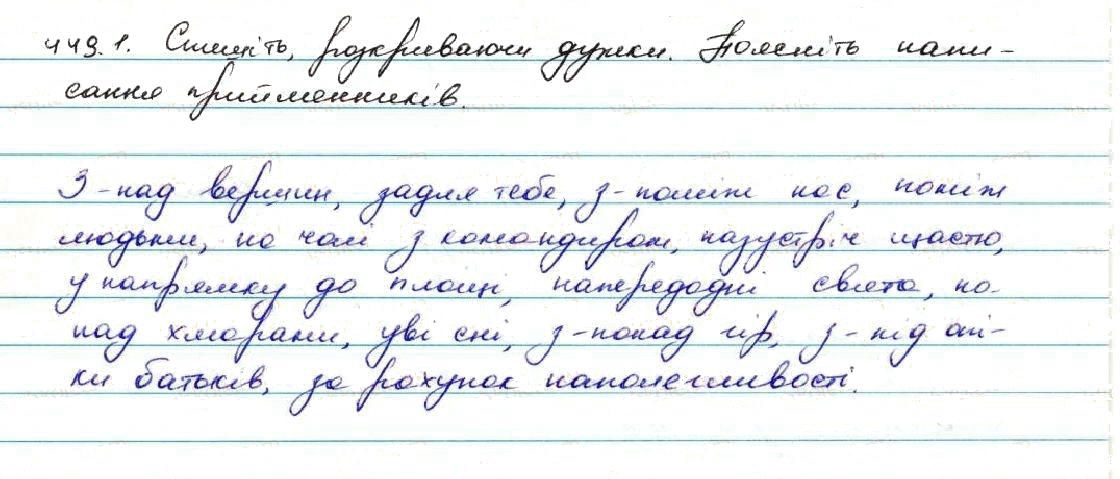 449.1. Спишіть, розкриваючи дужки. Поясніть напи-
сання прийменників.
З-над вершин, задля тебе, з-поміж нас, поміж
людьми, на чолі з командиром, назустріч щастю,
у напрямку до площі, напередодні свята, по-
над хмарами, уві сні, з-понад гір, з-під опі-
ки батьків, за рахунок наполегливості.